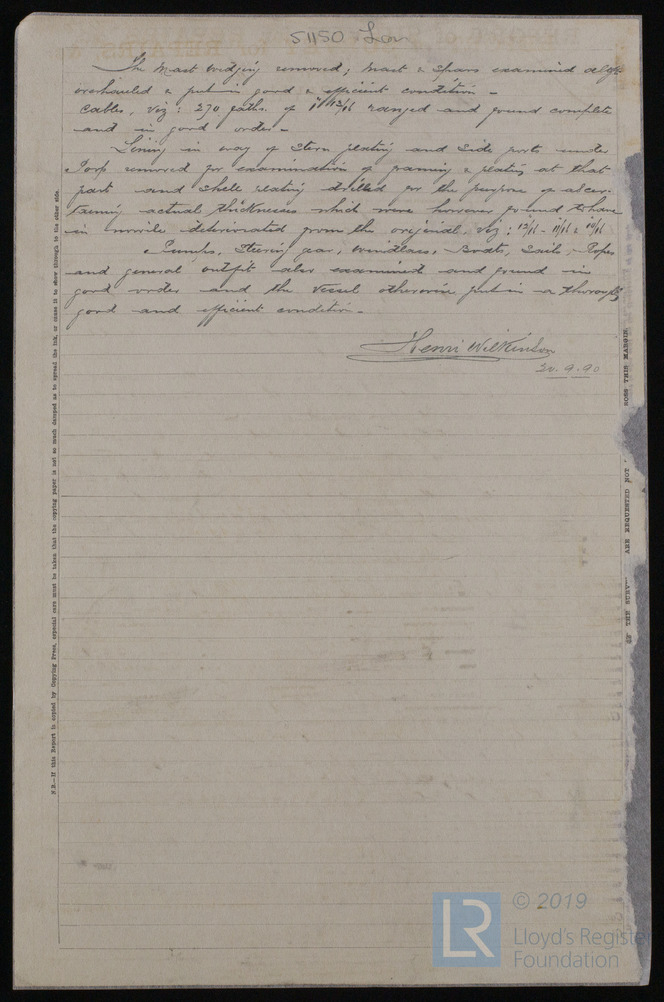 51150 Lon
The mast wedging removed; mast & spars examined
overhauled & put in good & efficient condition -
Cables, viz: 270 faths. of 1 13/16 ranged and found complete
and in good order -
Lining in way of Stern plating and side ports under
Poop removed for examination of framing & plating at that
part and shell plating drilled for the purpose of ascer-
taining actual thicknesses which were however found to have
in nowise deteriorated from the original, viz: 12/16 - 11/16 & 10/16
Pumps, Steering gear, windlass, Boats, Sails, Ropes
and general outfit also examined and found in
good order and the vessel otherwise put in a thoroughly
good and efficient condition -
Henri Wilkinson
20.9.90
N.B.-If this Report is copied by Copying Press, especial care must be taken that the copying paper is not so much damped as to spread the ink, or cause it to show through to the other side.
OF THE SURV ARE REQUESTED NOT ROSS THIS MARGIN
LR
© 2019
Lloyd's Register
Foundation